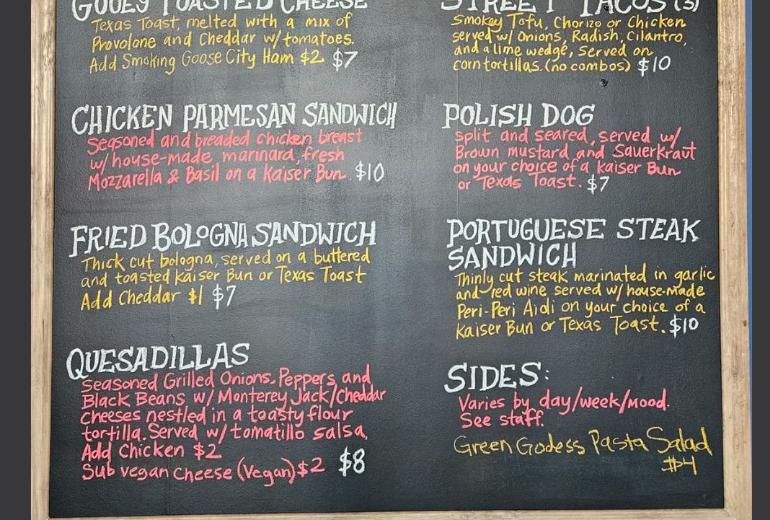 GOOEY TOASTED CHEESE
Texas Toast, melted with a mix of
Provolone and Cheddar w/tomatoes.
Add Smoking Goose City Ham $2 $7
CHICKEN PARMESAN SANDWICH
Seasoned and breaded chicken breast
w/house-made, marinara, fresh
Mozzarella & Basil on a Kaiser Bun. $10
FRIED BOLOGNA SANDWICH
Thick cut bologna, served on a buttered
and toasted Kaiser Bun or Texas Toast
Add Cheddar $1 $7
QUESADILLAS
Seasoned Grilled Onions, Peppers, and
Black Beans w/ Monterey Jack/Cheddar
Cheeses nestled in a toasty flour
tortilla. Served w/ tomatillo salsa,
Add Chicken $2
Sub vegan Cheese (Vegan) $2 $8
STREET TACOS (3)
Smokey Tofu, Chorizo or Chicken
served w/ Onions, Radish, Cilantro,
and a lime wedge, Served on
corn tortillas. (no combos) $10
POLISH DOG
split and seared, served w/
Brown mustard and Sauerkraut
on your choice of a Kaiser Bun
or Texas Toast. $7
PORTUGUESE STEAK
SANDWICH
Thinly cut steak marinated in garlic
and red wine served w/ house-made
Peri-Peri Aioli on your choice of a
Kaiser Bun or Texas Toast. $10
SIDES:
Varies by day/week/mood.
See staff.
Green Godess Pasta Salad
$4